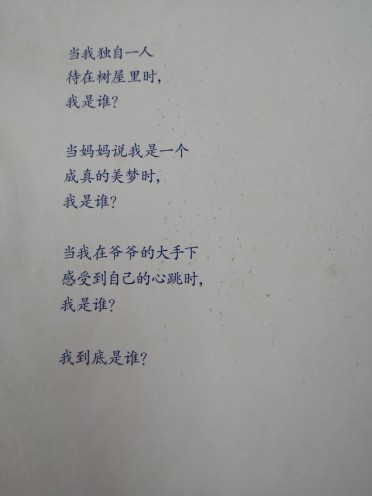 当我独自一人
待在树屋里时，
我是谁？
当妈妈说我是一个
成真的美梦时，
我是谁？
当我在爷爷的大手下
感受到自己的心跳时，
我是谁？
我到底是谁？